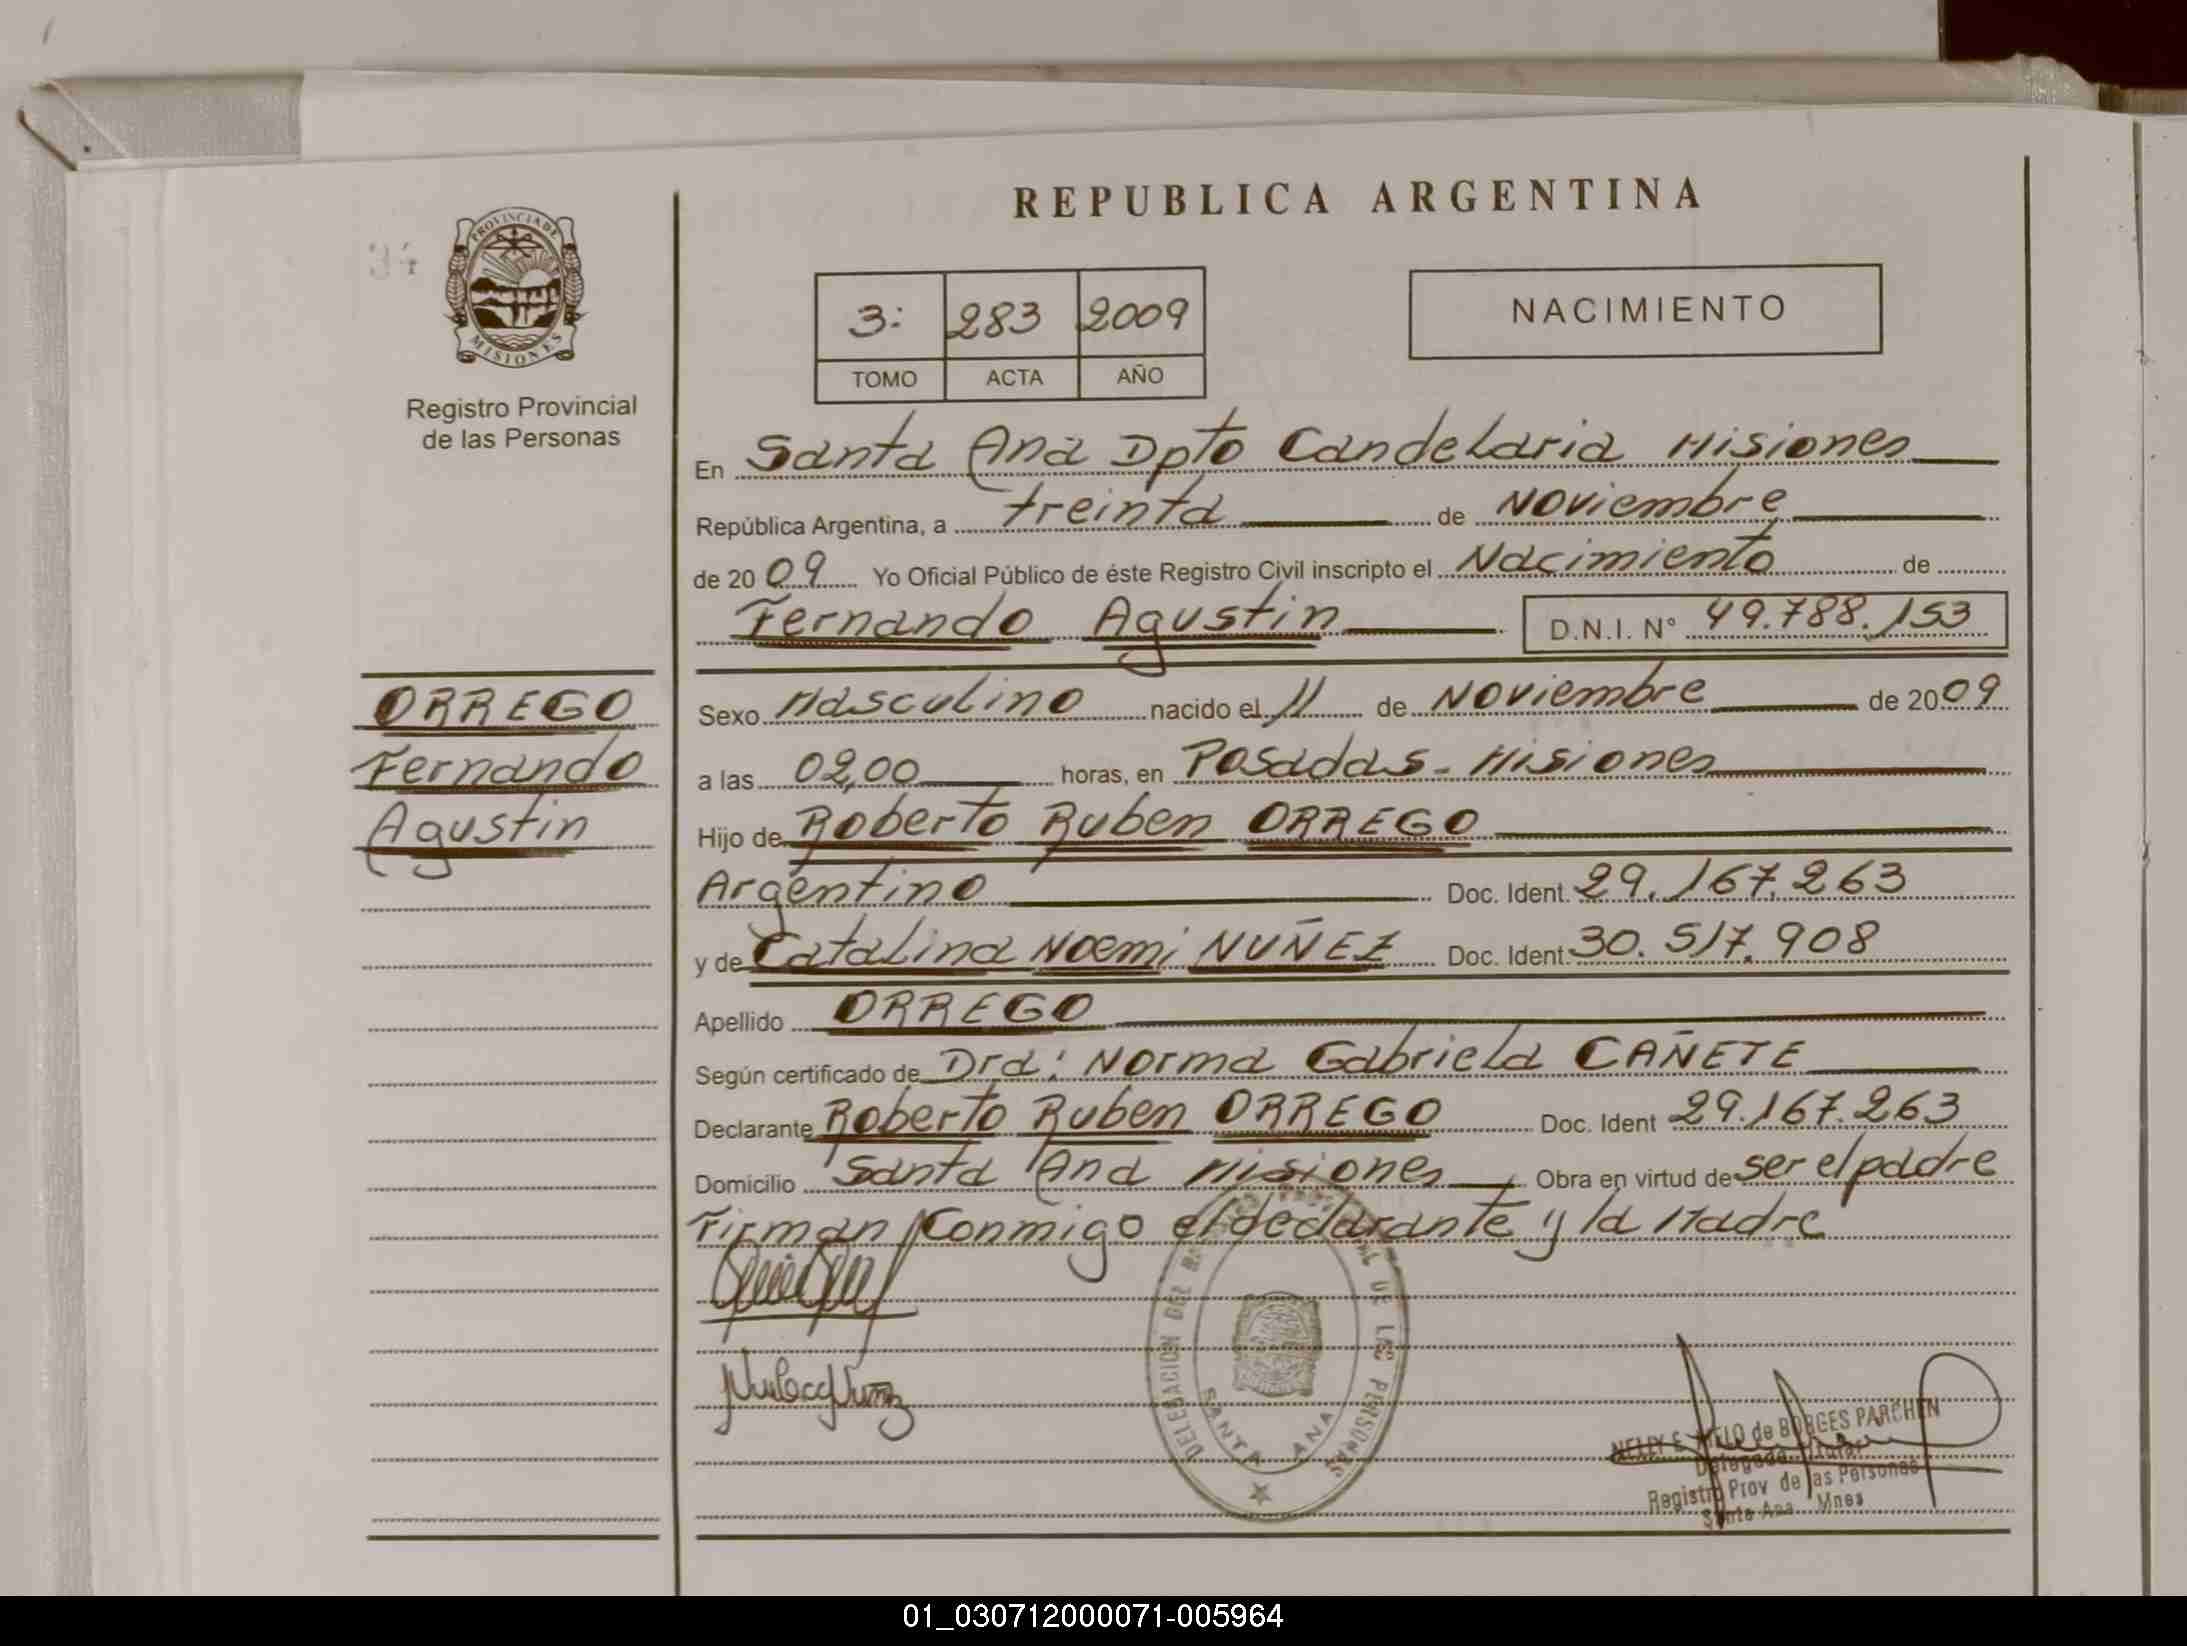 REPUBLICA ARGENTINA
34
PROVINCIA DE
MISIONES
Registro Provincial
de las Personas
3: 283 2009
TOMO ACTA AÑO
NACIMIENTO
En Santa Ana Dpto Candelaria Misiones
República Argentina, a treinta de Noviembre
de 2009 Yo Oficial Público de éste Registro Civil inscripto el Nacimiento de
Fernando Agustin D.N.I. N° 49.788.153
ORREGO
Fernando
Agustin
Sexo Masculino nacido el 11 de Noviembre de 2009
a las 02,00 horas, en Posadas - Misiones
Hijo de Roberto Ruben ORREGO
Argentino Doc. Ident. 29.167.263
y de Catalina Noemi NUÑEZ Doc. Ident. 30.517.908
Apellido ORREGO
Según certificado de Dra: Norma Gabriela CAÑETE
Declarante Roberto Ruben ORREGO Doc. Ident 29.167.263
Domicilio Santa Ana Misiones Obra en virtud de ser el padre
Firman Conmigo el declarante y la Madre
DELEGACION DEL DE LAS PERSONAS
SANTA ANA
NELLY E. MELO de BORGES PARCHEN
Delegada Titular
Registro Prov de las Personas
Santa Ana Mnes
01_030712000071-005964